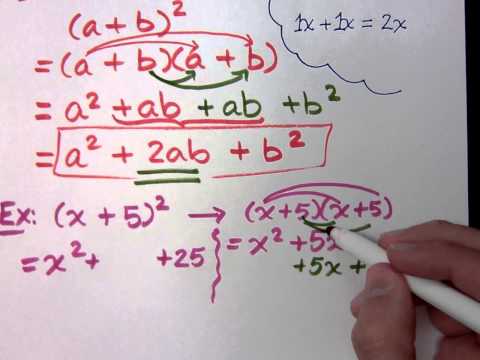 (a + b)²
1x + 1x = 2x
= (a + b)(a + b)
= a² + ab + ab + b²
= a² + 2ab + b²
Ex: (x + 5)² → (x+5)(x+5)
= x² + +25
= x² + 5x
+5x +